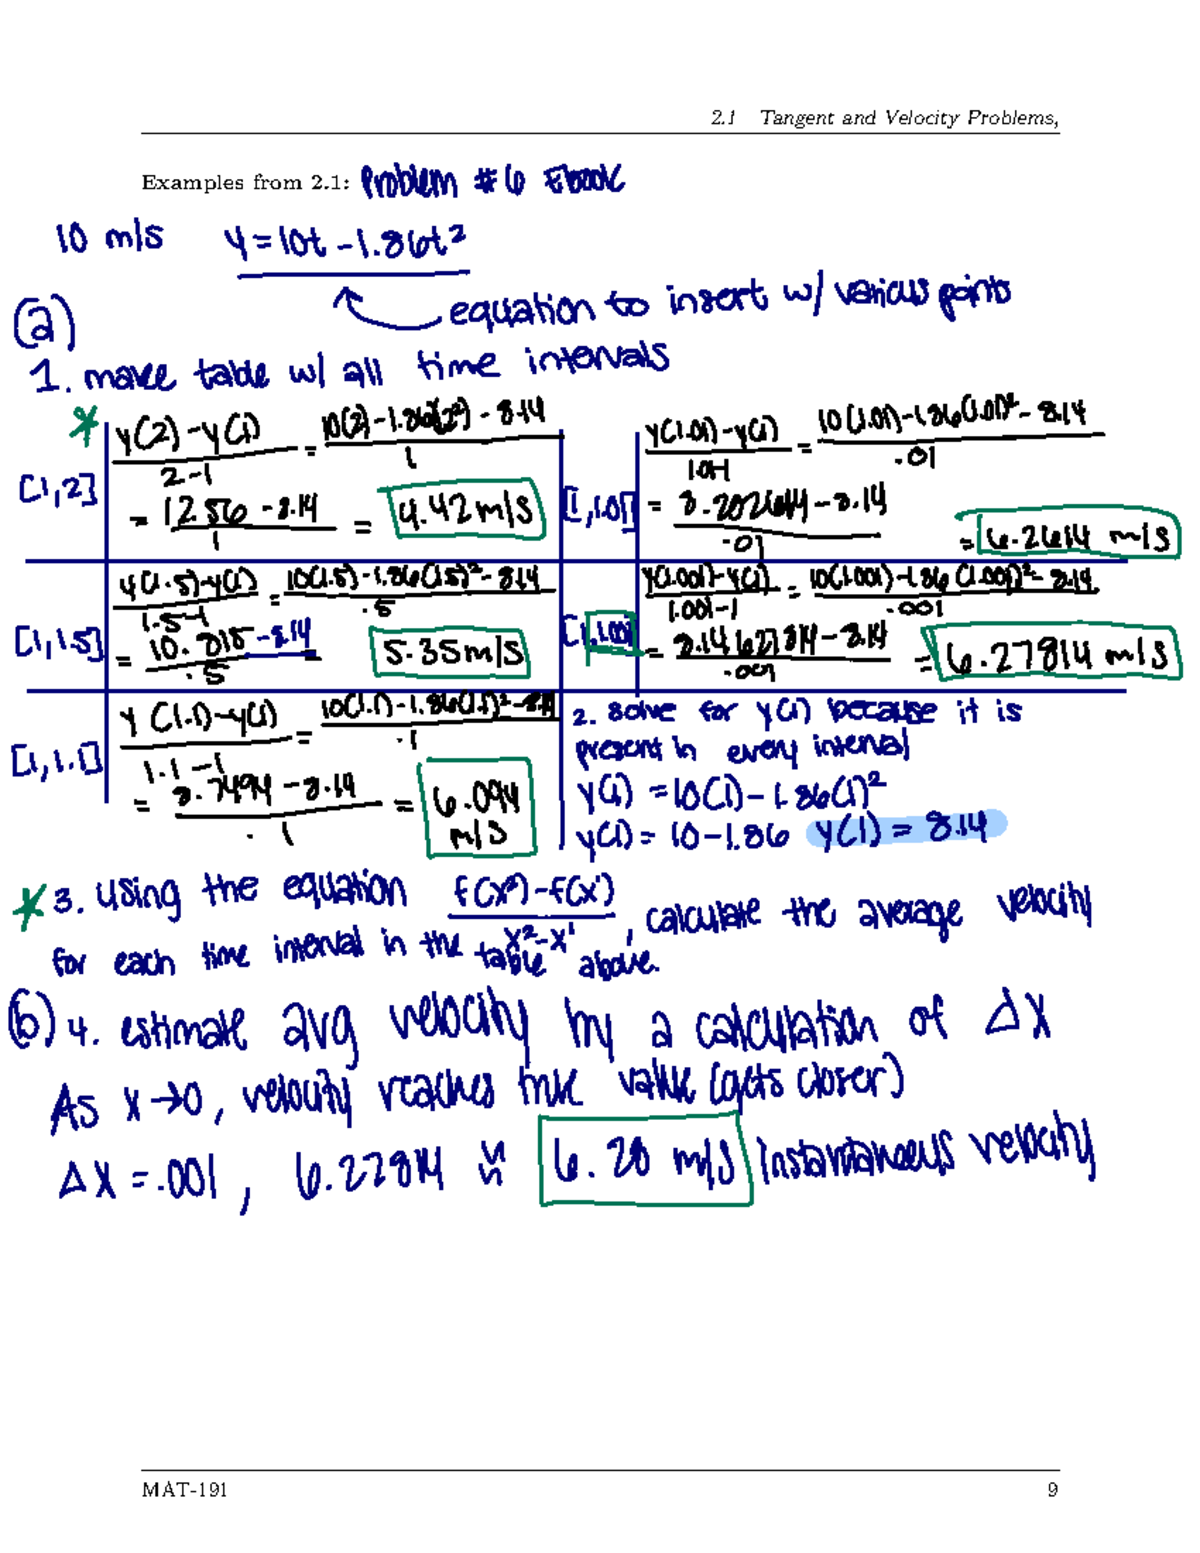 2.1 Tangent and Velocity Problems,
Examples from 2.1: Problem #6 Ebook
10 m/s y = 10t - 1.86t²
equation to insert w/ various points
(a)
1. make table w/ all time intervals
* [1,2] y(2) - y(1) / 2-1 = 10(2) - 1.86(2²) - 8.14 / 1
= 12.56 - 8.14 / 1 = 4.42 m/s
[1,1.5] y(1.5) - y(1) / 1.5-1 = 10(1.5) - 1.86(1.5)² - 8.14 / .5
= 10.815 - 8.14 / .5 = 5.35 m/s
[1,1.1] y(1.1) - y(1) / 1.1-1 = 10(1.1) - 1.86(1.1)² - 8.14 / .1
= 8.7494 - 8.14 / .1 = 6.094 m/s
[1,1.01] y(1.01) - y(1) / 1.01-1 = 10(1.01) - 1.86(1.01)² - 8.14 / .01
= 8.202614 - 8.14 / .01 = 6.2614 m/s
[1,1.001] y(1.001) - y(1) / 1.001-1 = 10(1.001) - 1.86(1.001)² - 8.14 / .001
= 8.14627814 - 8.14 / .001 = 6.27814 m/s
2. solve for y(1) because it is
present in every interval
y(1) = 10(1) - 1.86(1)²
y(1) = 10 - 1.86 y(1) = 8.14
* 3. using the equation f(x²) - f(x¹) / x² - x¹, calculate the average velocity
for each time interval in the table above.
(b) 4. estimate avg velocity by a calculation of Δx
As x→0, velocity reaches true value (gets closer)
Δx = .001, 6.27814 ≈ 6.28 m/s instantaneous velocity
MAT-191 9